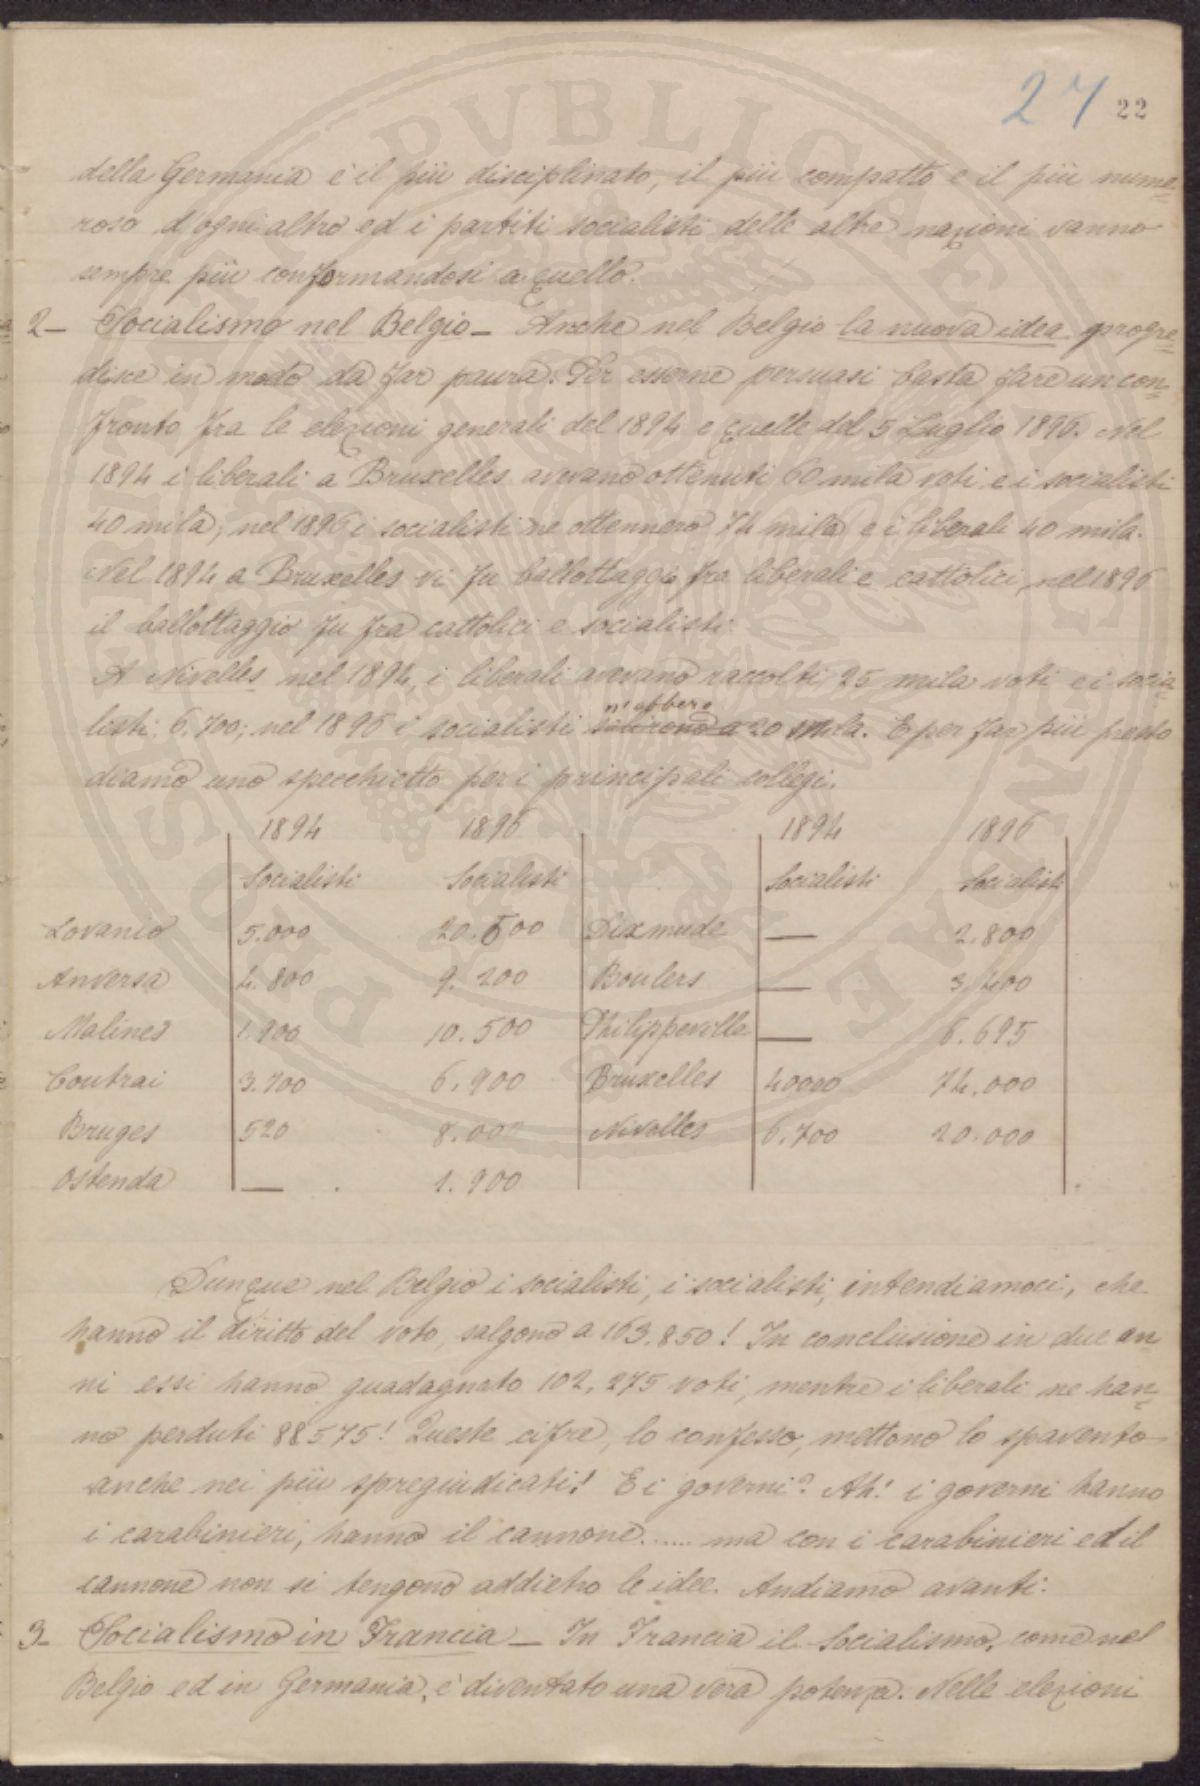 27 22
della Germania è il più disciplinato, il più compatto e il più nume=
roso d'ogni altro ed i partiti socialisti delle altre nazioni vanno
sempre più conformandosi a quello.
2_ Socialismo nel Belgio_ Anche nel Belgio la nuova idea progre=
disce in modo da far paura. Per esserne persuasi basta fare un con=
fronto fra le elezioni generali del 1894 e quelle del 5 Luglio 1896. Nel
1894 i liberali a Bruxelles avevano ottenuti 60 mila voti e i socialisti
40 mila; nel 1896 i socialisti ne ottennero 74 mila e i liberali 40 mila.
Nel 1894 a Bruxelles vi fu ballottaggio fra liberali e cattolici, nel 1896
il ballottaggio fu fra cattolici e socialisti.
A Nivelles nel 1894, i liberali avevano raccolti 25 mila voti e i socia=
listi 6.700; nel 1896 i socialisti n'ebbero 20 mila. E per far più presto
diamo uno specchietto per i principali collegi.
1894 1896 1894 1896
Socialisti Socialisti Socialisti Socialisti
Lovanio 5.000 20.600 Dixmude — 2.800
Anversa 4.800 9.200 Roulers — 3.400
Malines 1.900 10.500 Philippeville — 6.695
Coutrai 3.700 6.900 Bruxelles 40000 74.000
Bruges 520 8.000 Nivelles 6.700 20.000
Ostenda — 1.900
Dunque nel Belgio i socialisti, i socialisti, intendiamoci, che
hanno il diritto del voto, salgono a 163.850! In conclusione in due an=
ni essi hanno guadagnato 102,275 voti, mentre i liberali ne han=
no perduti 88575! Queste cifre, lo confesso, mettono lo spavento
anche nei più spregiudicati! E i governi? Ah! i governi hanno
i carabinieri, hanno il cannone...... ma con i carabinieri ed il
cannone non si tengono addietro le idee. Andiamo avanti.
3_ Socialismo in Francia _ In Francia il Socialismo, come nel
Belgio ed in Germania, è diventato una vera potenza. Nelle elezioni